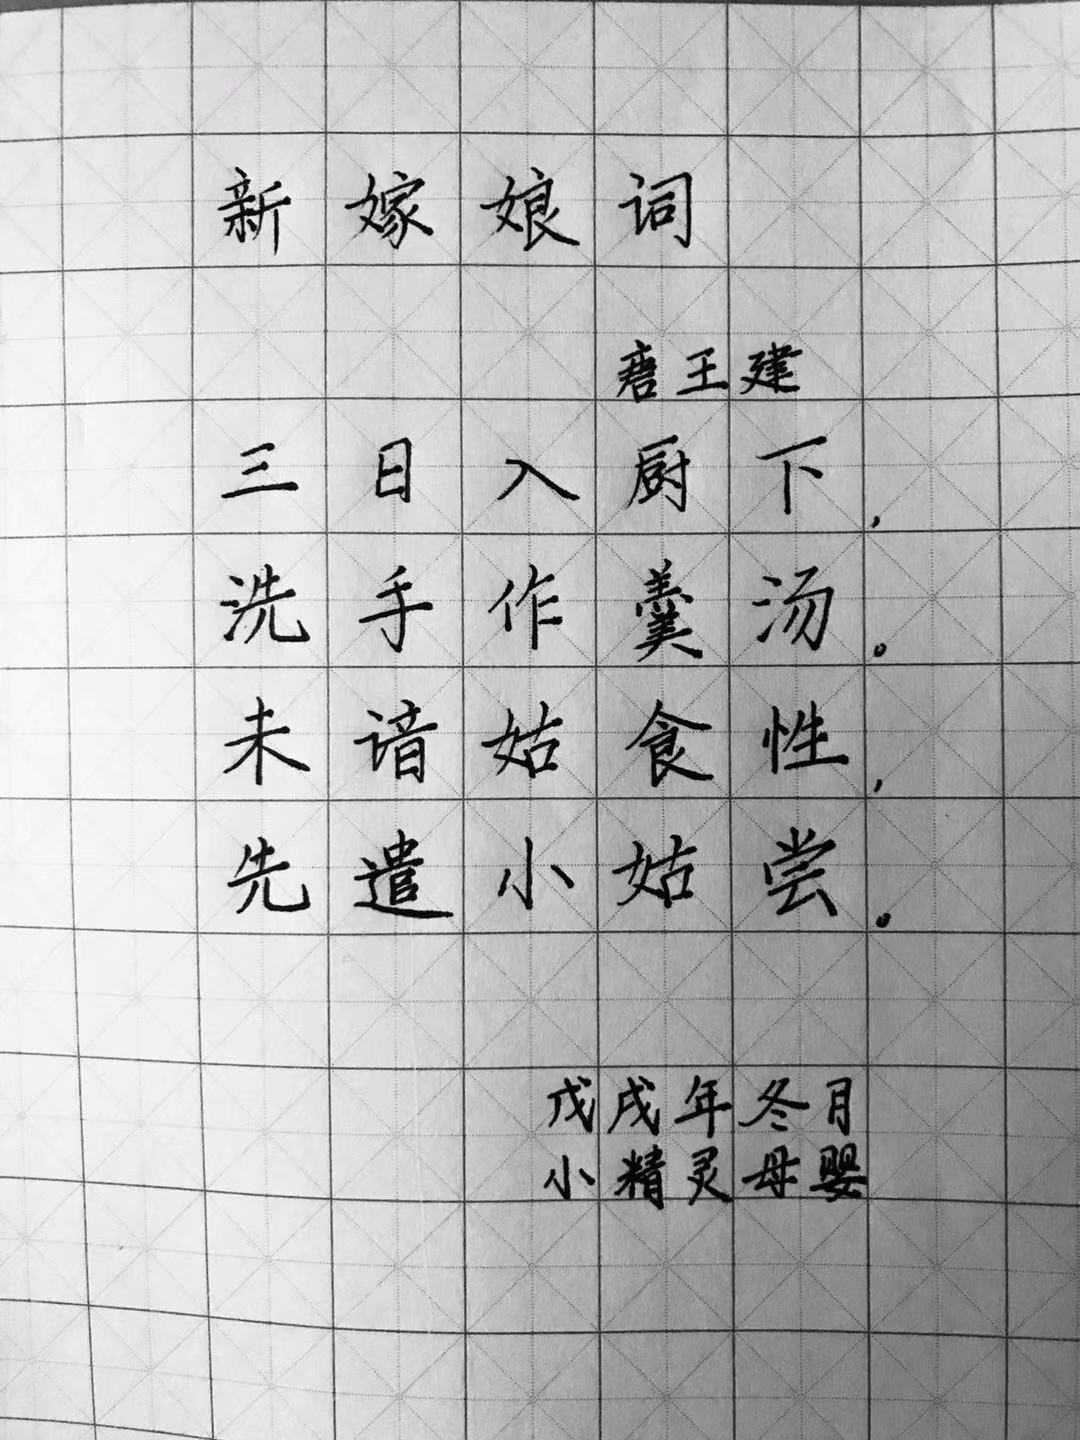 新嫁娘词
唐王建
三日入厨下,
洗手作羹汤。
未谙姑食性,
先遣小姑尝。
戊戌年冬月
小精灵母婴